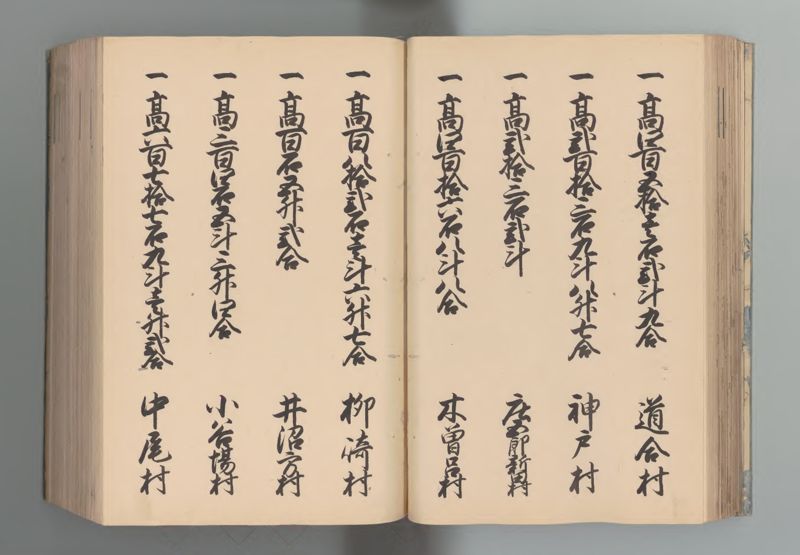 一高四百五拾壱石弐斗九合 道合村
一高弐百拾二石九斗八升七合 神戸村
一高弐拾二石弐斗 庄五郎新田村
一高四百拾六石八斗八合 木曽呂村
一高百八拾弐石壱斗六升七合 柳崎村
一高百石五升弐合 井沼方村
一高二百四石五斗二升四合 小谷場村
一高六百七拾七石九斗壱升弐合 中尾村